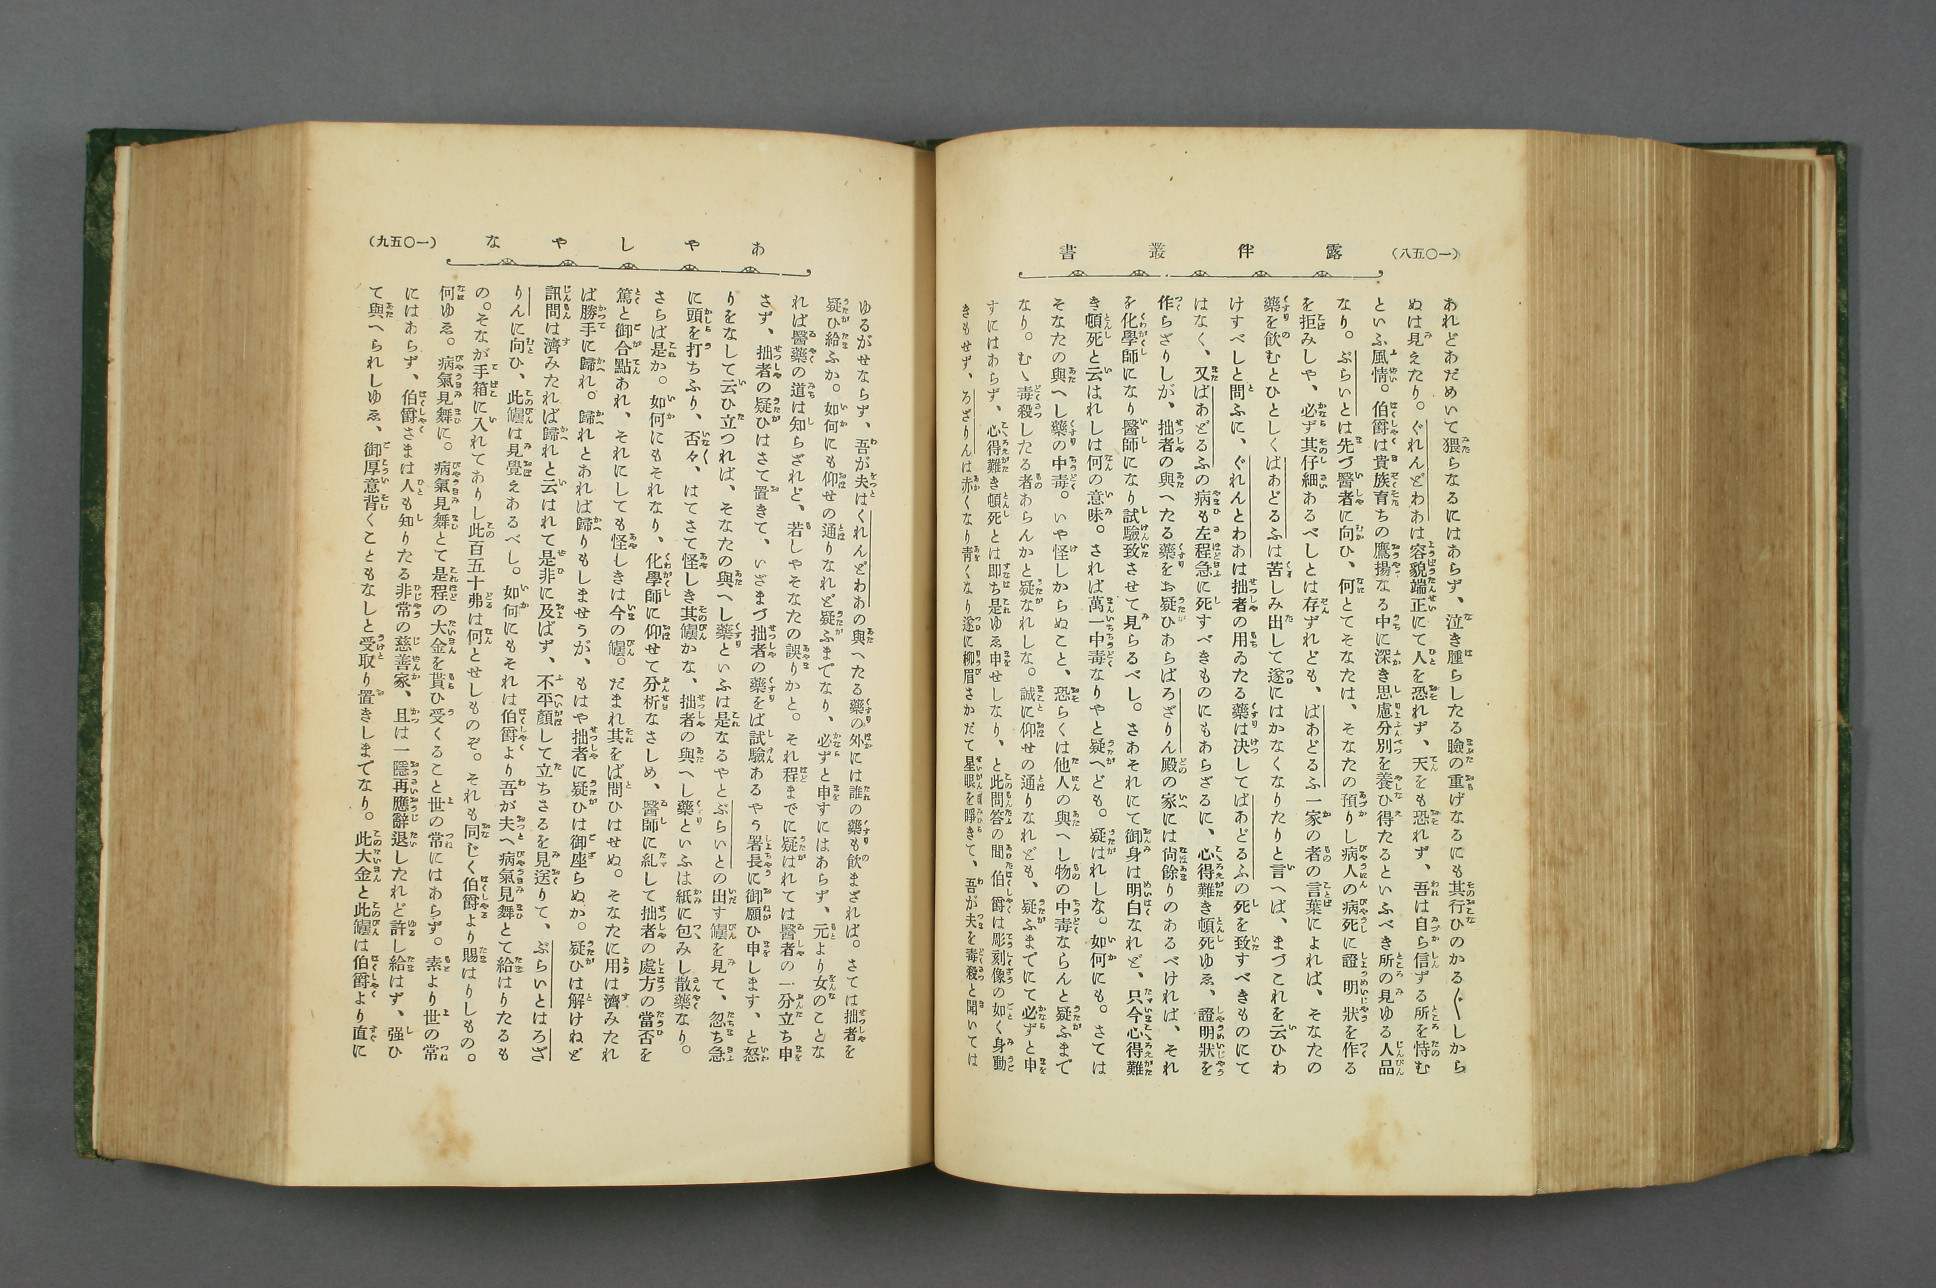 露伴叢書
(一〇五八)
あれどあだめいて猥らなるにはあらず、泣き腫らしたる瞼の重げなるにも其行ひのかる〴〵しから
ぬは見えたり。ぐれんどわあは容貌端正にて人を恐れず、天をも恐れず、吾は自ら信ずる所を恃む
といふ風情。伯爵は貴族育ちの鷹揚なる中に深き思慮分別を養ひ得たるといふべき所の見ゆる人品
なり。ぷらいとは先づ醫者に向ひ、何とてそなたは、そなたの預りし病人の病死に證明狀を作る
を拒みしや、必ず其仔細あるべしとは存ずれども、ばあどるふ一家の者の言葉によれば、そなたの
藥を飮むとひとしくばあどるふは苦しみ出して遂にはかなくなりたりと言へば、まづこれを云ひわ
けすべしと問ふに、ぐれんとわあは拙者の用ゐたる藥は決してばあどるふの死を致すべきものにて
はなく、又ばあどるふの病も左程急に死すべきものにもあらざるに、心得難き頓死ゆゑ、證明狀を
作らざりしが、拙者の與へたる藥をお疑ひあらばろざりん殿の家には尙餘りのあるべければ、それ
を化學師になり醫師になり試驗致させて見らるべし。さあそれにて御身は明白なれど、只今心得難
き頓死と云はれしは何の意味。されば萬一中毒なりやと疑へども。疑はれしな。如何にも。さては
そなたの與へし藥の中毒。いや怪しからぬこと、恐らくは他人の與へし物の中毒ならんと疑ふまで
なり。むゝ毒殺したる者あらんかと疑なれしな。誠に仰せの通りなれども、疑ふまでにて必ずと申
すにはあらず、心得難き頓死とは卽ち是ゆゑ申せしなり、と此問答の間伯爵は彫刻像の如く身動
きもせず、ろざりんは赤くなり靑くなり遂に柳眉さかだて星眼を睜きて、吾が夫を毒殺と聞いては
あやしやな
(一〇五九)
ゆるがせならず、吾が夫はくれんどわあの與へたる藥の外には誰の藥も飮まざれば。さては拙者を
疑ひ給ふか。如何にも仰せの通りなれど疑ふまでなり、必ずと申すにはあらず、元より女のことな
れば醫藥の道は知らざれど、若しやそなたの誤りかと。それ程までに疑はれては醫者の一分立ち申
さず、拙者の疑ひはさて置きて、いざまづ拙者の藥をば試驗あるやう署長に御願ひ申します、と怒
りをなして云ひ立つれば、そなたの與へし藥といふは是なるやとぷらいとの出す罎を見て、忽ち急
に頭を打ちふり、否々、はてさて怪しき其罎かな、拙者の與へし藥といふは紙に包みし散藥なり。
さらば是か。如何にもそれなり、化學師に仰せて分析なさしめ、醫師に糺して拙者の處方の當否を
篤と御合點あれ、それにしても怪しきは今の罎。だまれ其をば問ひはせぬ。そなたに用は濟みたれ
ば勝手に歸れ。歸れとあれば歸りもしませうが、もはや拙者に疑ひは御座らぬか。疑ひは解けねど
訊問は濟みたれば歸れと云はれて是非に及ばず、不平顏して立ちさるを見送りて、ぷらいとはろざ
りんに向ひ、此罎は見覺えあるべし。如何にもそれは伯爵より吾が夫へ病氣見舞とて給はりたるも
の。そなが手箱に入れてありし此百五十弗は何とせしものぞ。それも同じく伯爵より賜はりしもの。
何ゆゑ。病氣見舞に。病氣見舞とて是程の大金を貰ひ受くること世の常にはあらず。素より世の常
にはあらず、伯爵さまは人も知りたる非常の慈善家、且は一應再應辭退したれど許し給はず、强ひ
て與へられしゆゑ、御厚意背くこともなしと受取り置きしまでなり。此大金と此罎は伯爵より直に